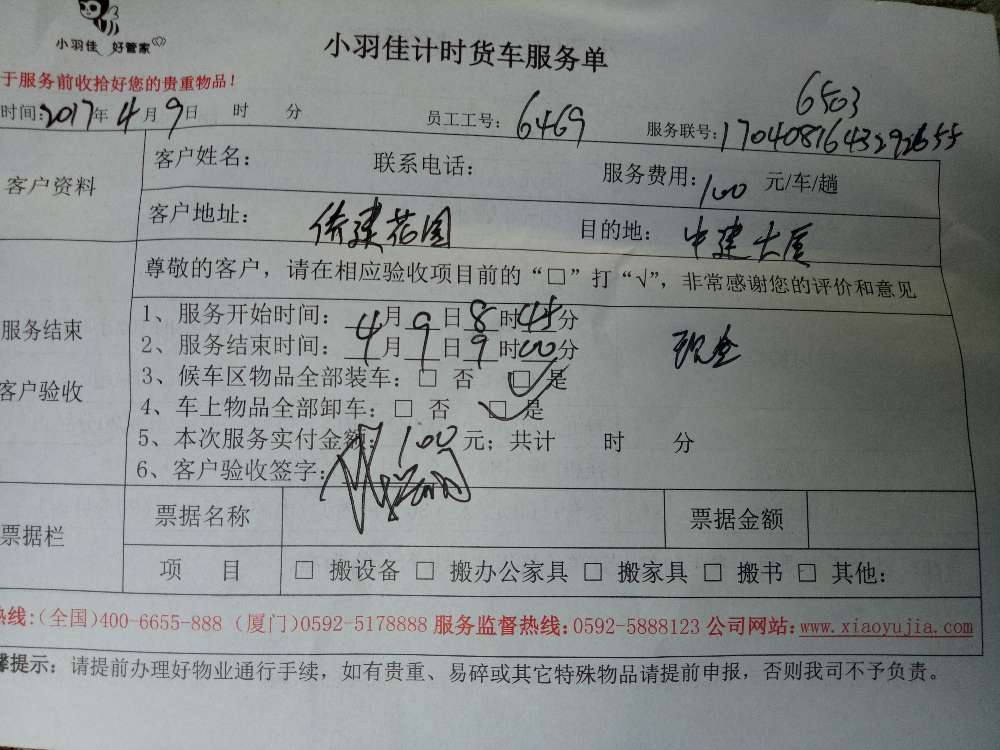 小羽佳 好管家
小羽佳计时货车服务单
于服务前收拾好您的贵重物品!
6503
时间:2017年4月9日 时 分 员工工号:6469 服务联号:
客户资料
客户姓名: 联系电话: 服务费用:100 元/车/趟
客户地址: 侨建花园 目的地: 中建大厦
服务结束
客户验收
尊敬的客户,请在相应验收项目前的“□”打“√”,非常感谢您的评价和意见
1、服务开始时间:4月9日8时45分
2、服务结束时间:4月9日9时00分 现金
3、候车区物品全部装车:□ 否 □ 是
4、车上物品全部卸车:□ 否 □ 是
5、本次服务实付金额:100元;共计 时 分
6、客户验收签字:
票据栏
票据名称 票据金额
项 目 □ 搬设备 □ 搬办公家具 □ 搬家具 □ 搬书 □ 其他:
热线:(全国)400-6655-888 (厦门)0592-5178888 服务监督热线:0592-5888123 公司网站:www.xiaoyujia.com
馨提示:请提前办理好物业通行手续,如有贵重、易碎或其它特殊物品请提前申报,否则我司不予负责。